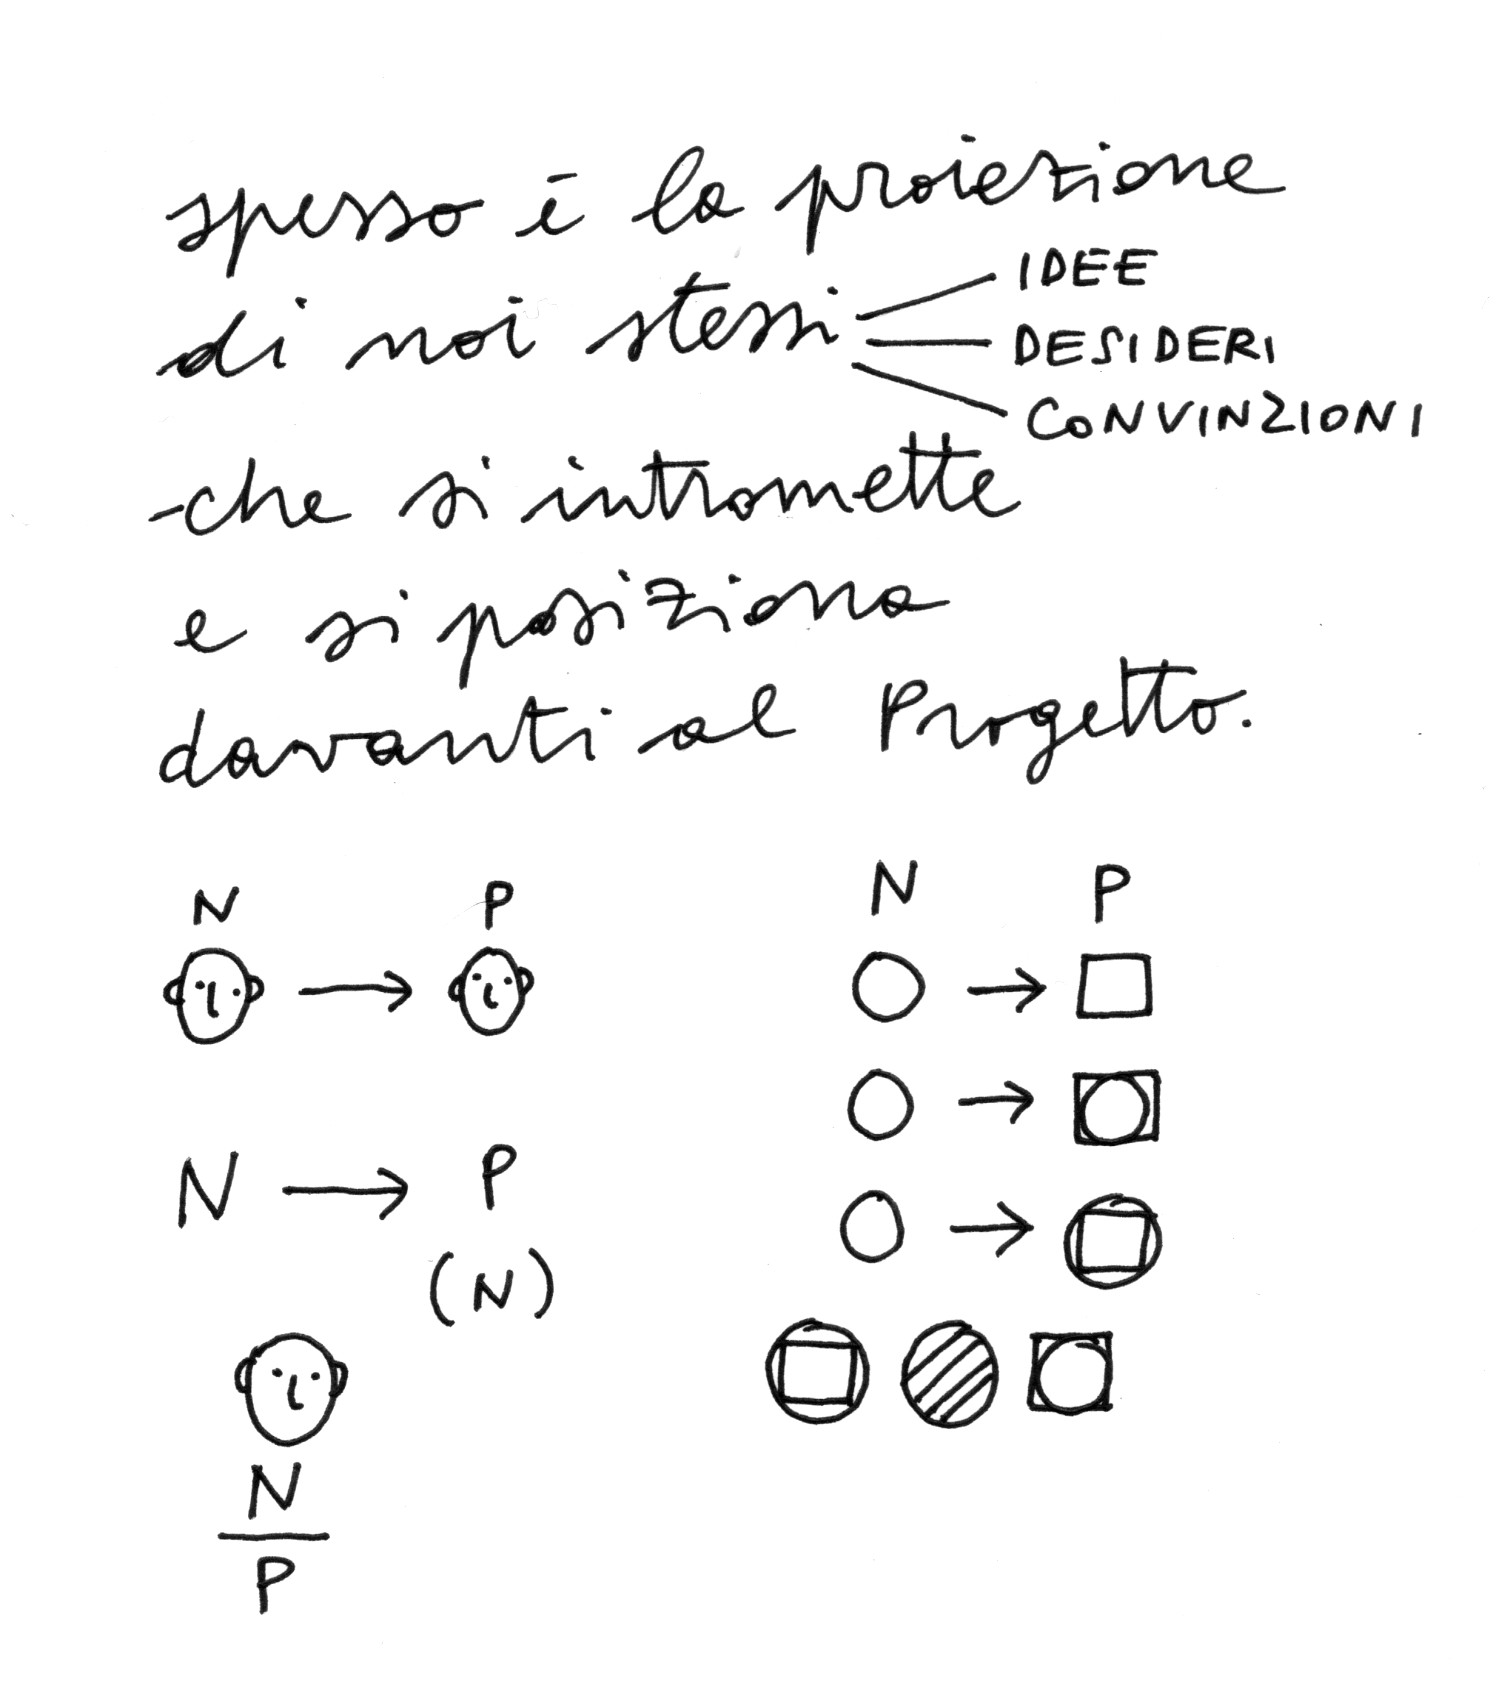 spesso è la proiezione
di noi stessi
IDEE
DESIDERI
CONVINZIONI
che si intromette
e si posiziona
davanti al Progetto.
N P
N → P
(N)
N
P
N P